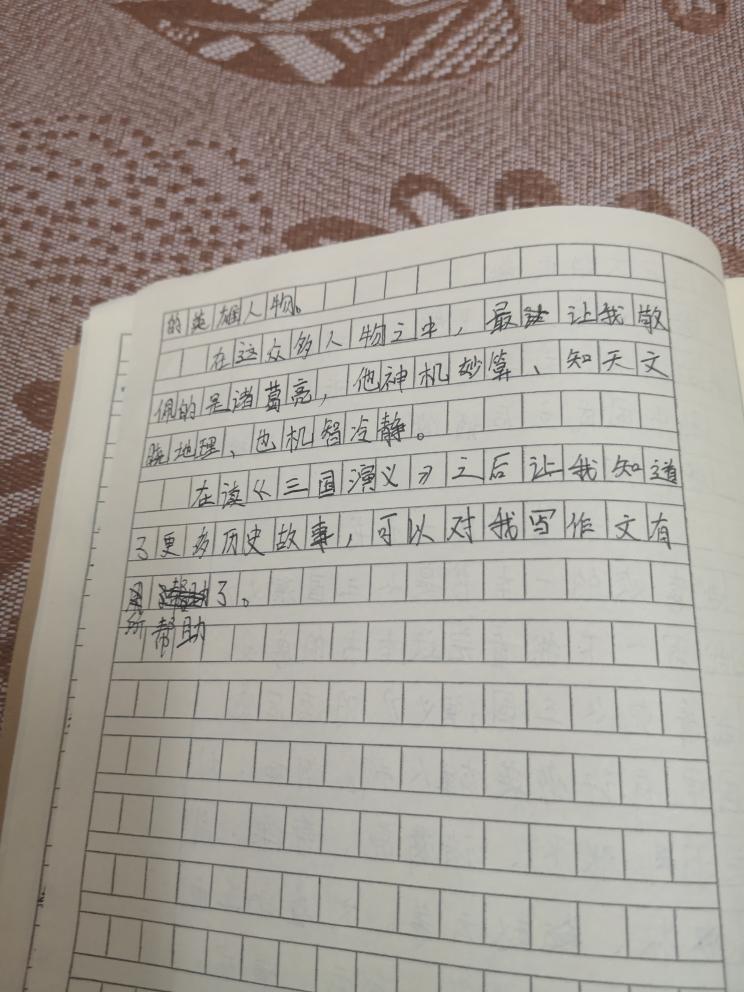 的英雄人物。
在这众多人物之中，最让我敬
佩的是诸葛亮，他神机妙算、知天文
晓地理、也机智冷静。
在读《三国演义》之后让我知道
了更多历史故事，可以对我写作文有
了。
所帮助